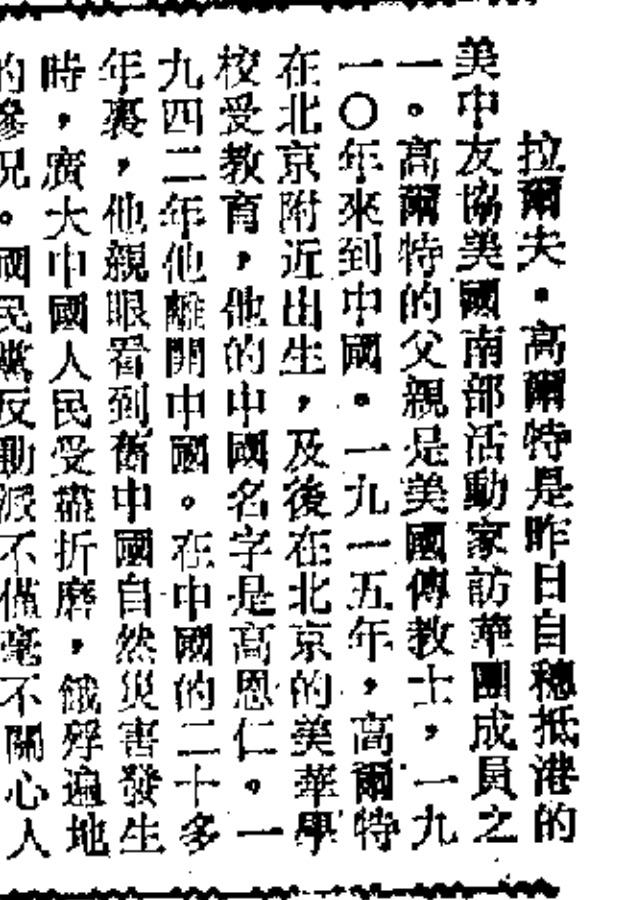 拉爾夫·高爾特是昨日自穗抵港的
美中友協美國南部活動家訪華團成員之
一。高爾特的父親是美國傳教士，一九
一〇年來到中國。一九一五年，高爾特
在北京附近出生，及後在北京的美華學
校受教育，他的中國名字是高恩仁。一
九四二年他離開中國。在中國的二十多
年裏，他親眼看到舊中國自然災害發生
時，廣大中國人民受盡折磨，餓殍遍地
的慘況。國民黨反動派不僅毫不關心人